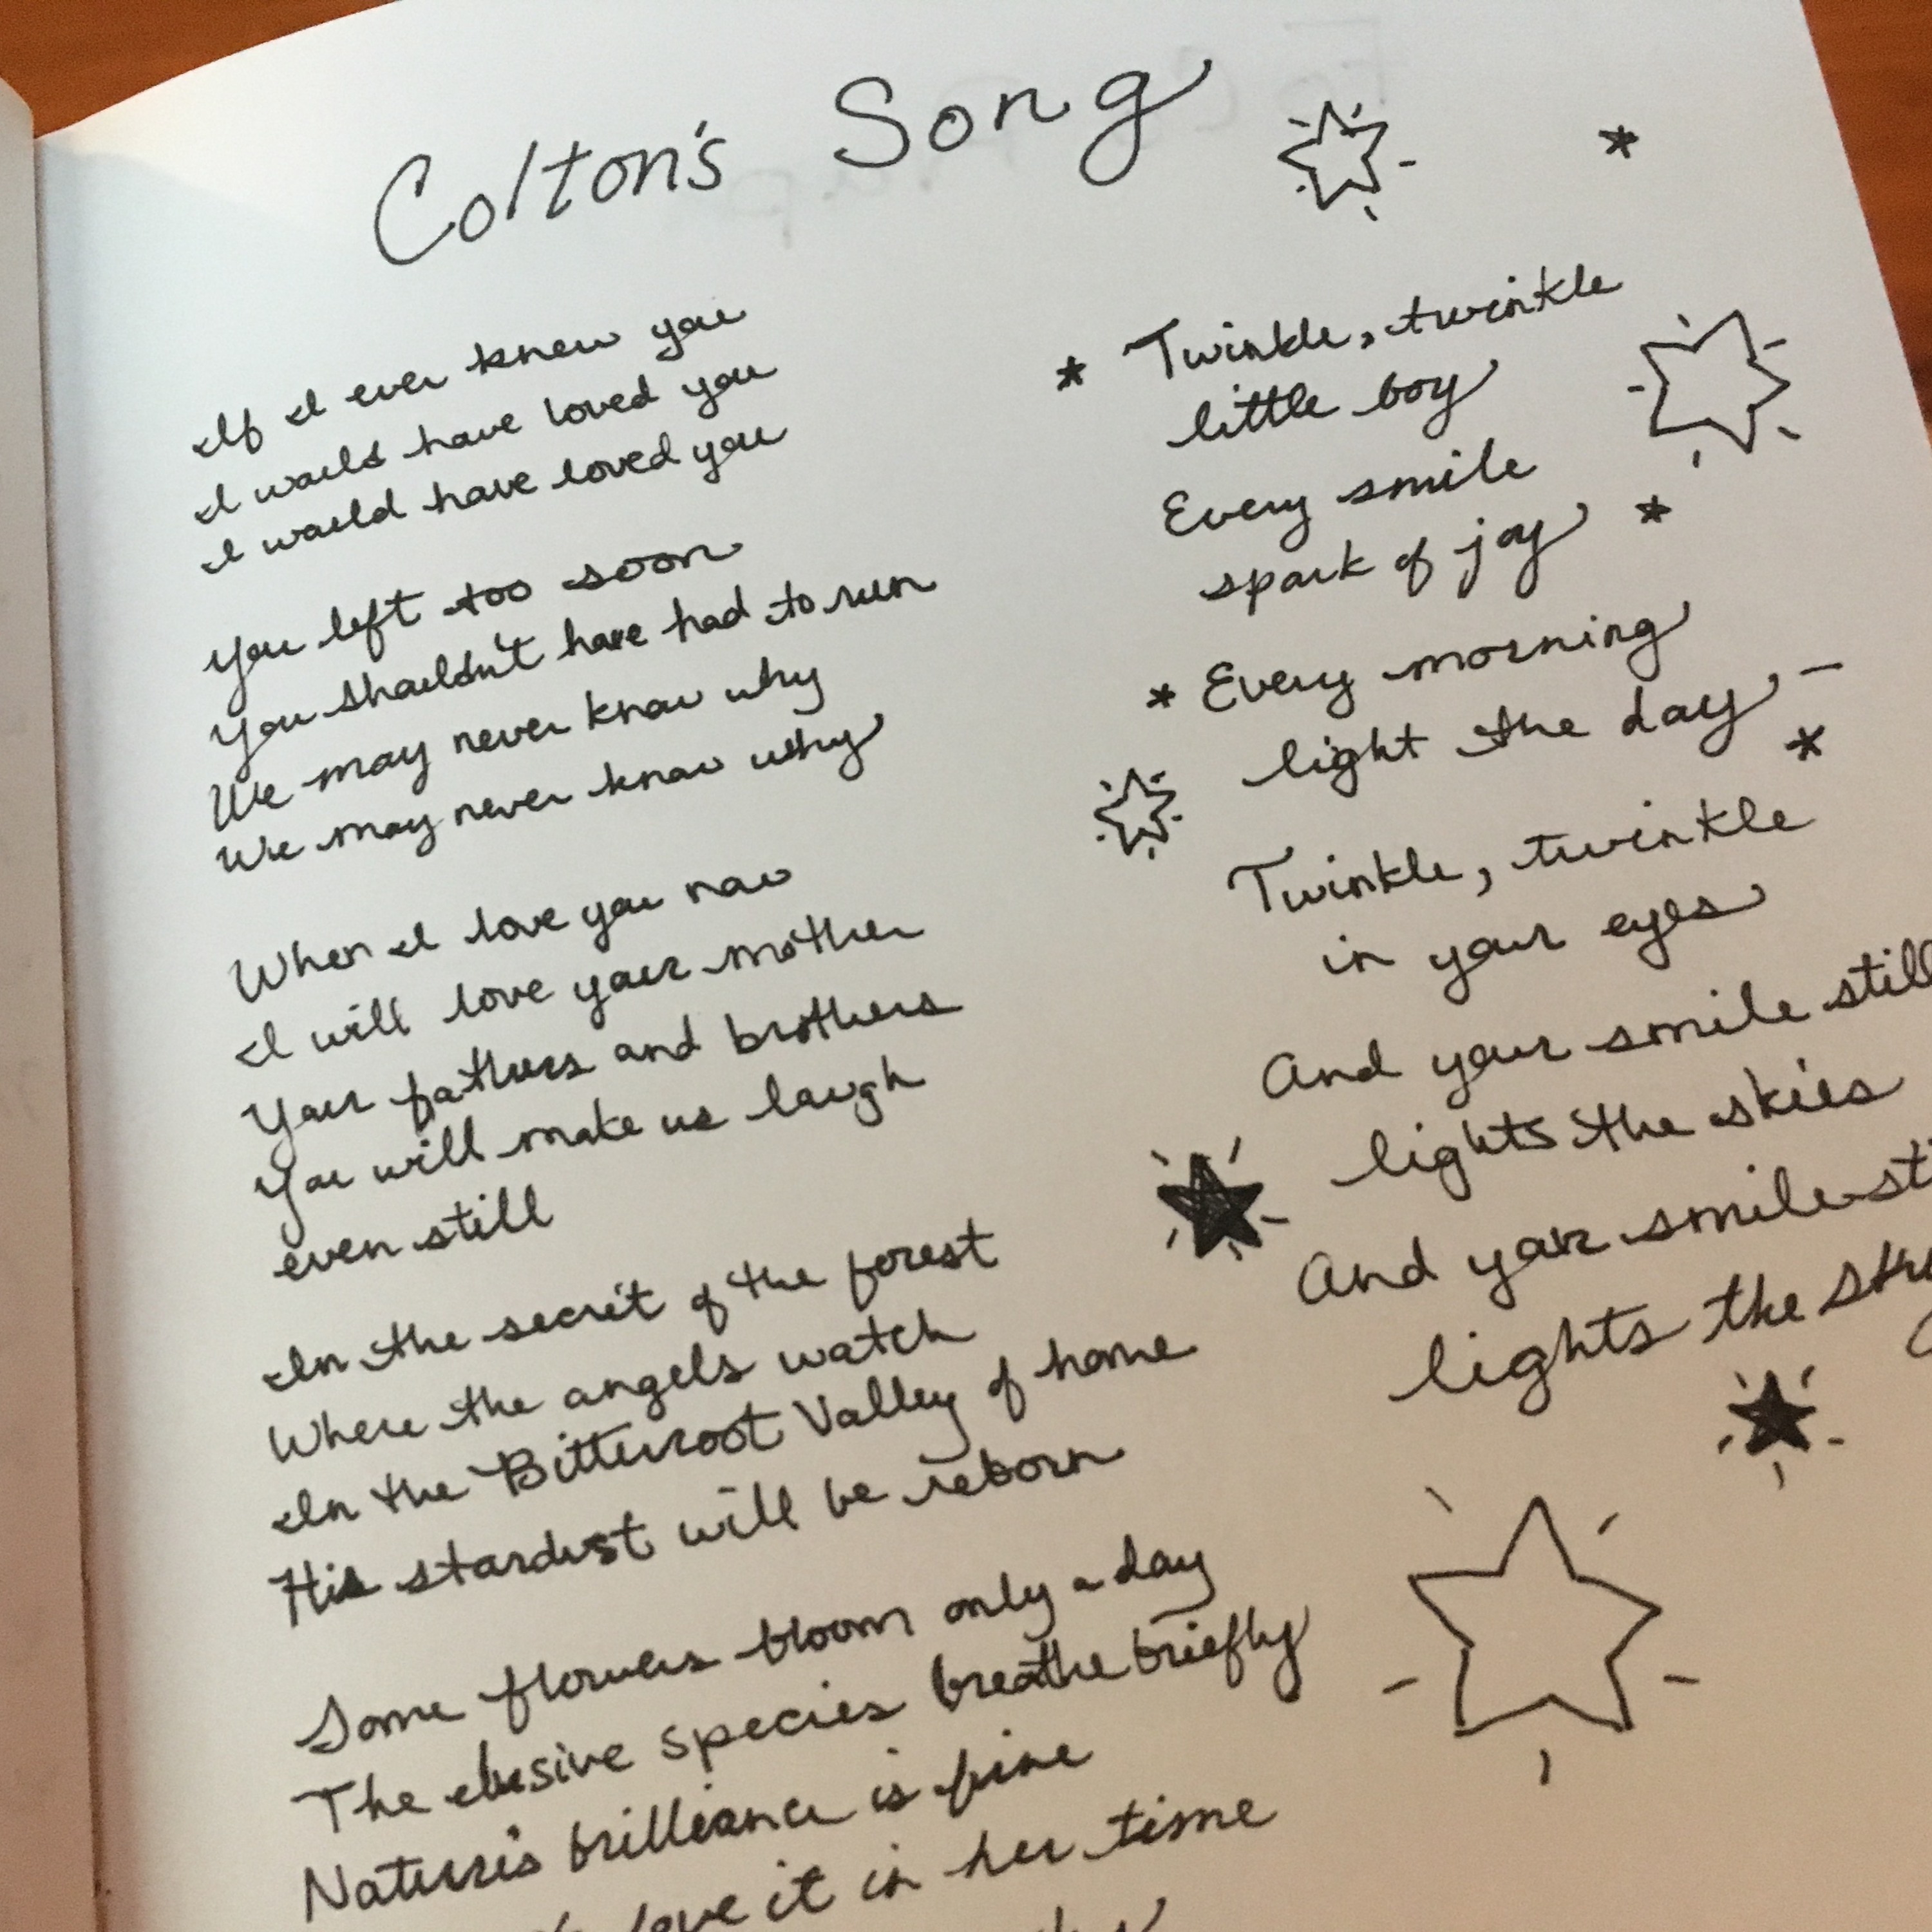 Colton's Song
If I ever knew you
I would have loved you
I would have loved you
You left too soon
You shouldn't have had to run
We may never know why
We may never know why
When I love you now
I will love your mother
Your fathers and brothers
You will make us laugh
even still
In the secret of the forest
Where the angels watch
In the Bitterroot Valley of home
His stardust will be reborn
Some flowers bloom only a day
The elusive species breathe briefly
Nature's brilliance is fine
love it in her time
* Twinkle, twinkle
little boy
Every smile
spark of joy
* Every morning
light the day –
Twinkle, twinkle
in your eyes
And your smile still
lights the skies
And your smile
lights the